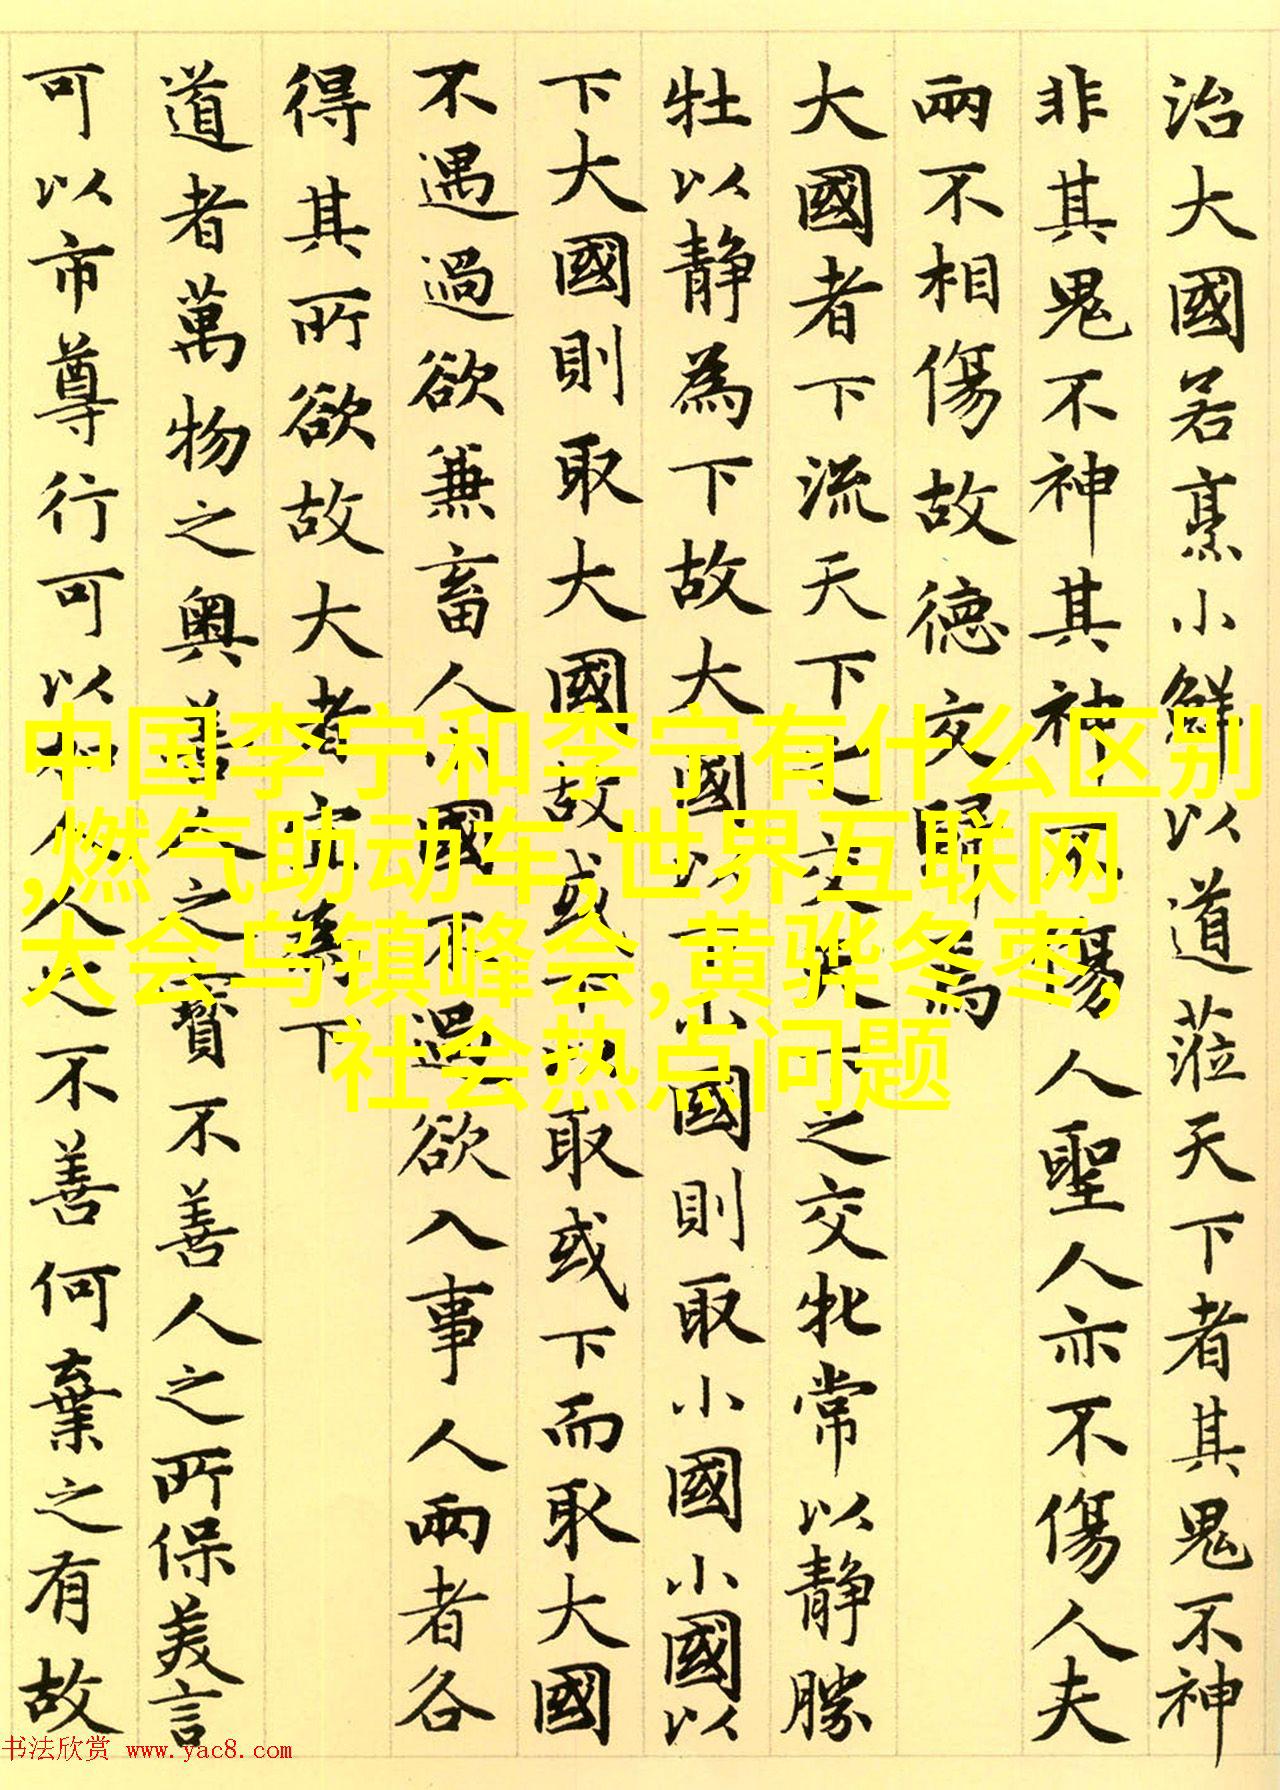 治大國若烹小鮮以道蒞天下者其鬼不神
非其鬼不神其神不傷人聖人亦不傷人夫
兩不相傷故德交歸焉
大國者下流天下之交天下之交牝常以静勝
牡以静為下故大國以下小國則取小國小國以
下大國則取大國故或下以取或下而取大國
不遇過欲兼畜人小國不過欲入事人兩者各
得其所欲故大者宜為下
道者萬物之奥善人之寳不善人之所保美言
可以市尊行可以加人人之不善何棄之有故
中国李宁和李宁有什么区别
,燃气助动车,世界互联网
大会乌镇峰会,黄骅冬枣,
社会热点问题
书法欣赏 www.yac8.com